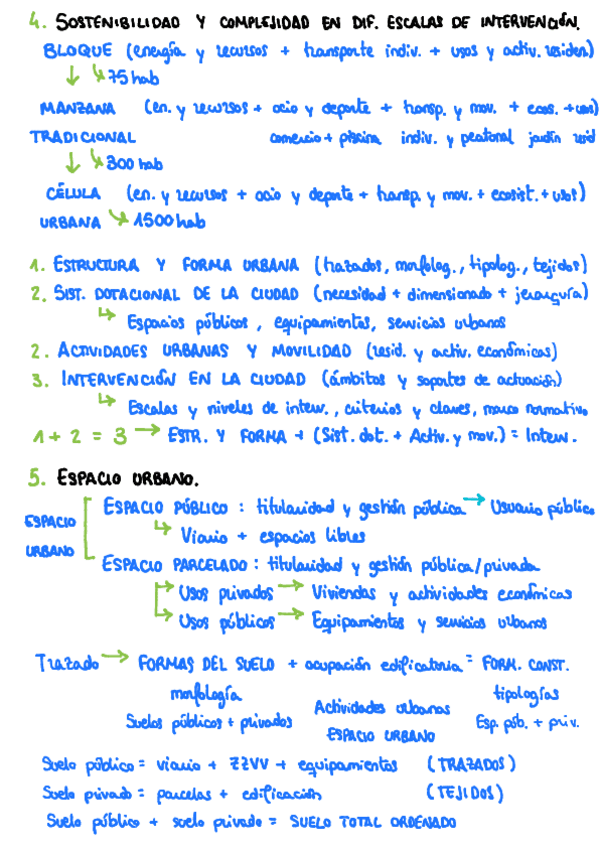 4. SOSTENIBILIDAD Y COMPLEJIDAD EN DIF. ESCALAS DE INTERVENCIÓN.
BLOQUE (energía y recursos + transporte indiv. + usos y activ. residen)
↓ ↳ 75 hab
MANZANA (en. y recursos + ocio y deporte + transp. y mov. + ecos. + usos)
TRADICIONAL comercio + piscina indiv. y peatonal jardín resid
↓ ↳ 300 hab
CÉLULA (en. y recursos + ocio y deporte + transp. y mov. + ecosist. + usos)
URBANA ↳ 1500 hab
1. ESTRUCTURA Y FORMA URBANA (trazados, morfolog., tipolog., tejidos)
2. SIST. DOTACIONAL DE LA CIUDAD (necesidad + dimensionado + jerarquía)
↳ Espacios públicos, equipamientos, servicios urbanos
2. ACTIVIDADES URBANAS Y MOVILIDAD (resid. y activ. económicas)
3. INTERVENCIÓN EN LA CIUDAD (ámbitos y soportes de actuación)
↳ Escalas y niveles de interv., criterios y claves, marco normativo
1 + 2 = 3 → ESTR. Y FORMA + (Sist. dot. + Activ. y mov.) = Interv.
5. ESPACIO URBANO.
ESPACIO URBANO
ESPACIO PÚBLICO : titularidad y gestión pública → Usuario público
↳ Viario + espacios libres
ESPACIO PARCELADO : titularidad y gestión pública/privada
↳ Usos privados → Viviendas y actividades económicas
↳ Usos públicos → Equipamientos y servicios urbanos
Trazado → FORMAS DEL SUELO + ocupación edificatoria = FORM. CONST.
morfología tipologías
Suelos públicos + privados Actividades urbanas Esp. púb. + priv.
ESPACIO URBANO
Suelo público = viario + ZZVV + equipamientos (TRAZADOS)
Suelo privado = parcelas + edificación (TEJIDOS)
Suelo público + suelo privado = SUELO TOTAL ORDENADO